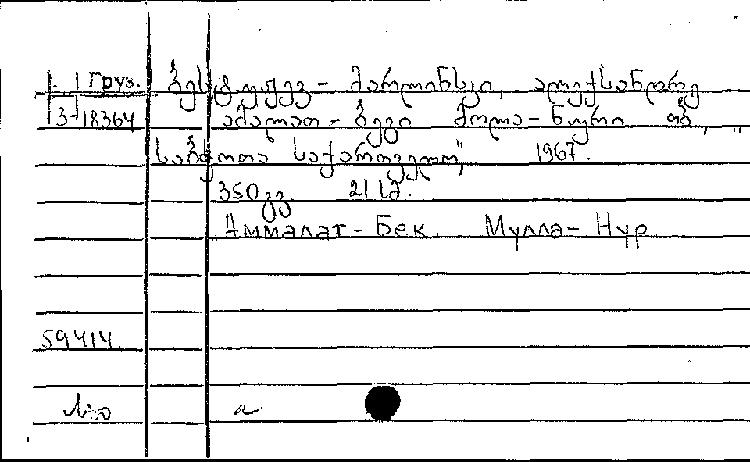 Груз. ბესტუჟევ - მარლინსკი, ალექსანდრე
3-18364 ამალათ - ბეგი მოლა - ნური თბ., "
საბჭოთა საქართველო", 1967.
350 გვ. 21 სმ.
Аммалат - Бек. Мулла - Нур
59414
a